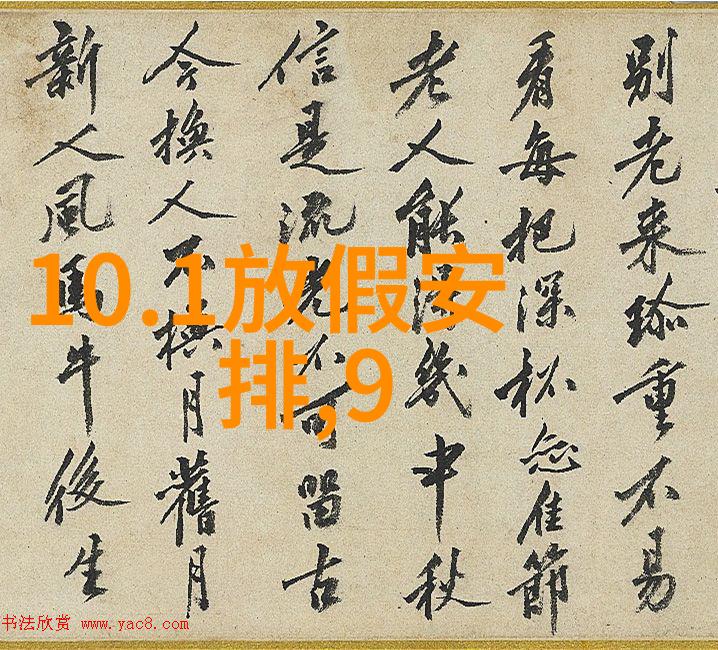 別老来珎重不易
看每把深杯佳節
老人能得幾中秋
信是流光不可留古
今換人不換月舊月
新人風馬牛後生
10.1放假安
排,9
书法欣赏 www.yac8.com